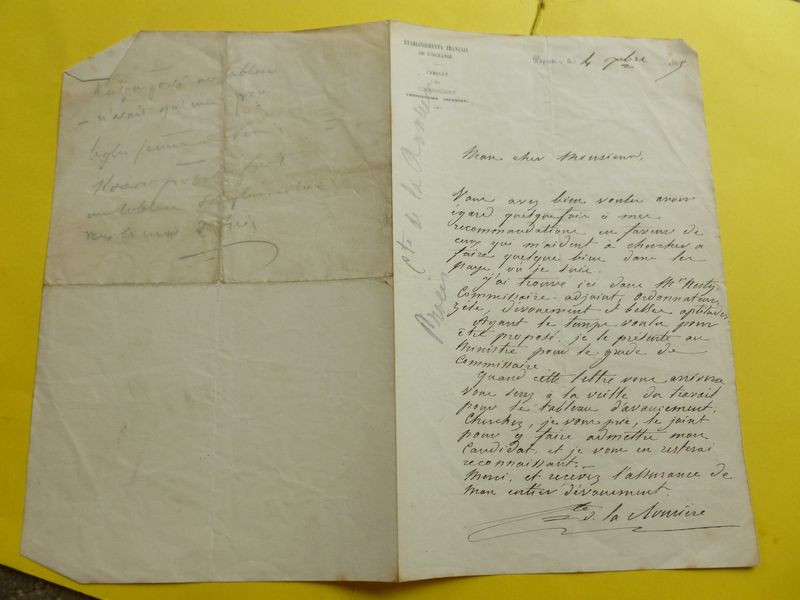 ÉTABLISSEMENTS FRANÇAIS
DE L'OCÉANIE.
CABINET
DU
COMMISSAIRE IMPÉRIAL.
Papeete, le 4 9bre 186
Mon cher Monsieur,
Vous avez bien voulu avoir
égard quelquefois à mes
recommandations en faveur de
ceux qui m'aident à chercher à
faire quelque bien dans les
pays, où je suis.
J'ai trouvé ici dans Mr
Commissaire-adjoint, ordonnateur,
zèle, dévouement et belles aptitudes
Ayant le temps voulu pour
être proposé, je le présente au
Ministre pour le grade de
Commissaire
Quand cette lettre vous arrivera
vous serez à la veille du travail
pour le tableau d'avancement.
Cherchez, je vous prie, le joint
pour y faire admettre mon
Candidat, et je vous en resterai
reconnaissant.
Merci, et recevez l'assurance de
mon entier dévouement.
Cte de la Roncière
Cte de la Roncière
tableau
n'avait qu'un
un tableau